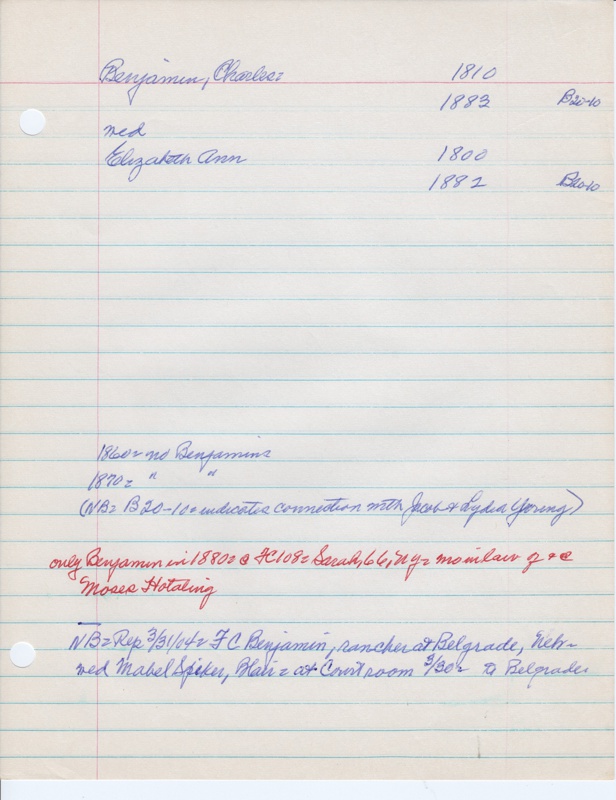 Benjamin, Charles= 1810
1883 B20-10
wed
Elizabeth Ann 1800
1882 B20-10
1860= no Benjamins
1870= " "
(NB= B20-10= indicates connection with Jacob & Lydia Young)
only Benjamin in 1880= @ FC108= Sarah, 66, NY= mo inlaw of &@
Moses Hotaling
NB= Rep 3/31/04= FC Benjamin, rancher at Belgrade, Neb=
wed Mabel Spiker, Blair= at Court room 3/30= to Belgrade=